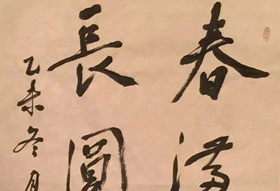 春滿
長圓
乙未冬月